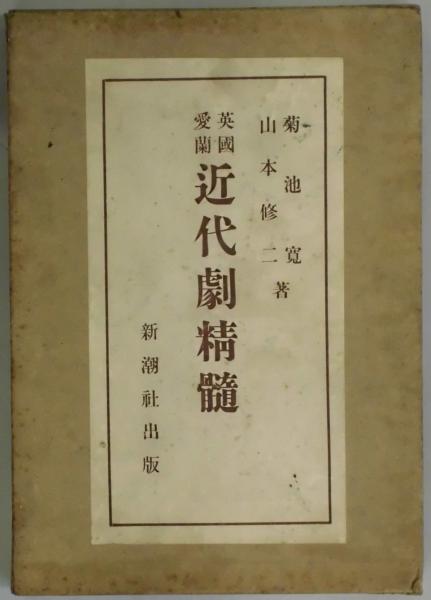 菊池寛
山本修二著
英國
愛蘭
近代劇精髓
新潮社出版